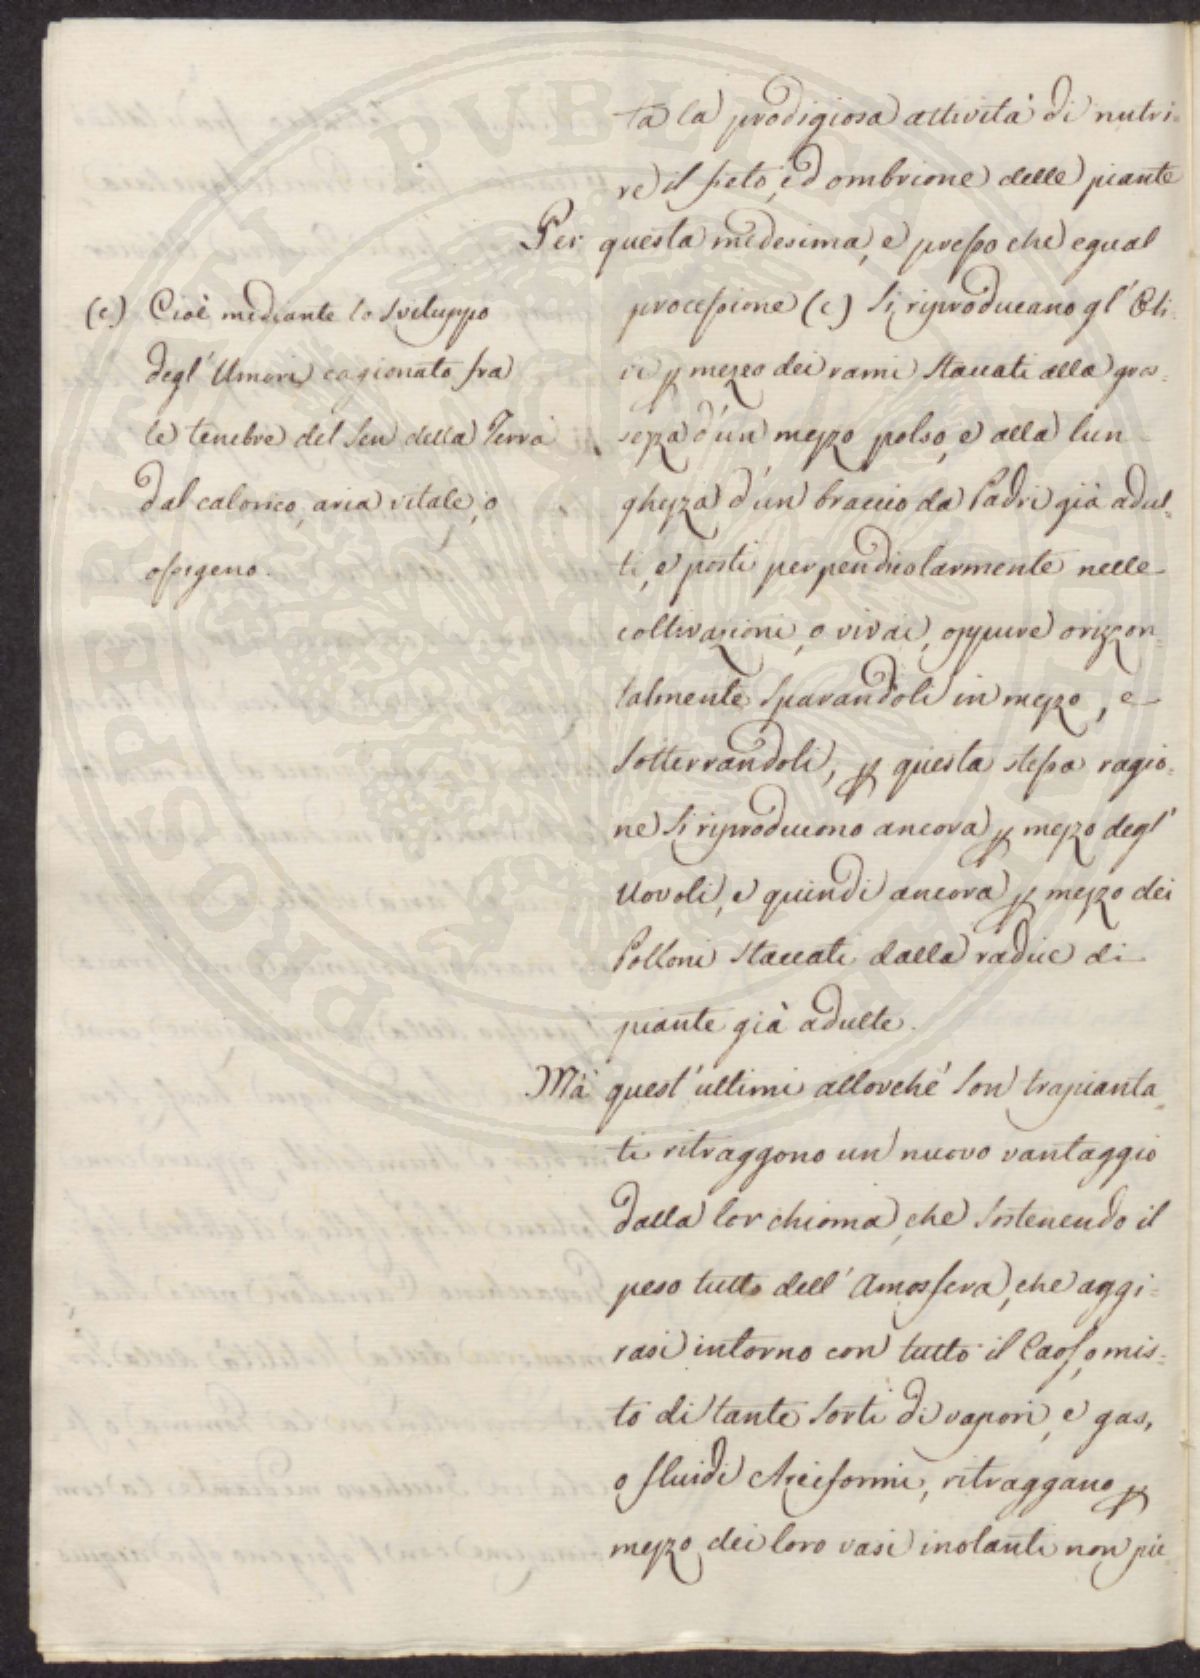 ta la prodigiosa attività di nutri-
re il feto, ed ombrione delle piante
Per questa medesima, e presso che egual
processione (c) si riproducano gl' Oli-
vi p mezzo dei rami staccati alla gros-
sezza d'un mezzo polso, e alla lun-
ghezza d'un braccio da Padri già adul-
ti, e posti perpendicolarmente nelle
coltivazioni, o vivai, oppure orizzon-
talmente sparandoli in mezzo, e
sotterrandoli, p questa stessa ragio-
ne si riproducono ancora p mezzo degl'
Uovoli, e quindi ancora p mezzo dei
Polloni staccati dalla radice di
piante già adulte.
Mà quest'ultimi allorché son trapianta-
ti ritraggono un nuovo vantaggio
dalla lor chioma, che sostenendo il
peso tutto dell' Amosfera, che aggi-
rasi intorno con tutto il Caos, o mis-
to di tante sorti di vapori, e gas,
o fluidi Aeriformi, ritraggano p
mezzo dei loro vasi inolanti non più
(c) Cioè mediante lo sviluppo
degl' Umori cagionato fra
le tenebre del sen della Terra
dal calorico, aria vitale, o
ossigeno.
PROSPERITATI PUBLICAE